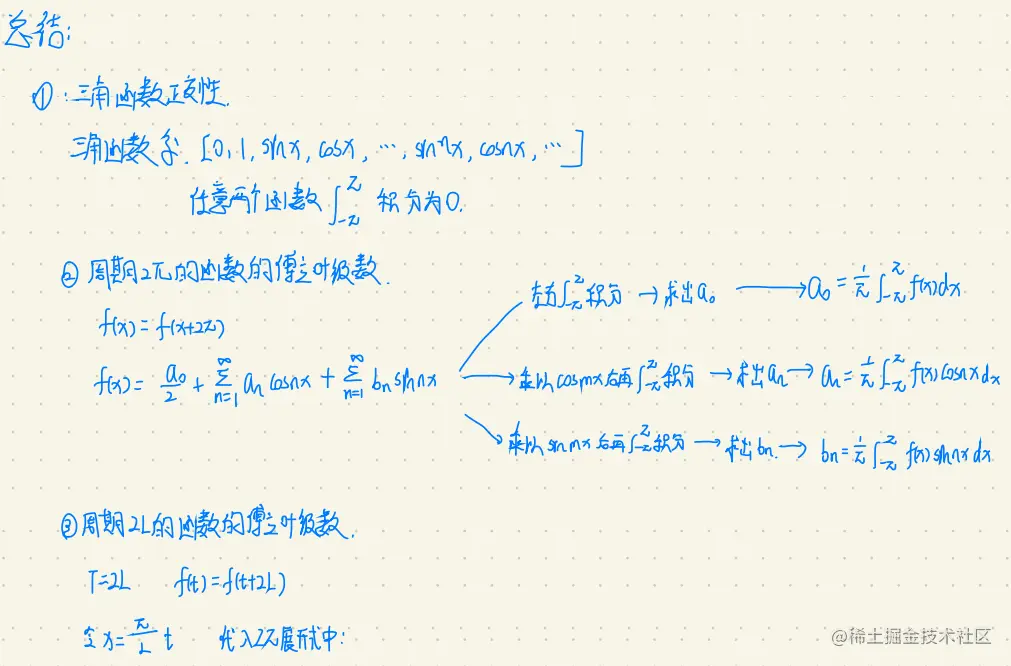 总结:
①:三角函数正交性.
三角函数系. [0, 1, sinx, cosx, …, sinnx, cosnx, …]
任意两个函数 ∫_{-π}^{π} 积分为0.
② 周期2π的函数的傅立叶级数.
f(x) = f(x+2π)
f(x) = a₀/2 + Σ_{n=1}^{∞} aₙ cosnx + Σ_{n=1}^{∞} bₙ sinnx
∫_{-π}^{π} 积分 → 求出a₀ → a₀ = 1/π ∫_{-π}^{π} f(x)dx
→ 乘以cosmx后再∫_{-π}^{π}积分 → 求出aₙ → aₙ = 1/π ∫_{-π}^{π} f(x)cosnxdx
→ 乘以sinmx后再∫_{-π}^{π}积分 → 求出bn. → bn = 1/π ∫_{-π}^{π} f(x)sinnxdx
③周期2L的函数的傅立叶级数.
T=2L f(t) = f(t+2L)
令 x = π/L t 代入2π展形式中:
@稀土掘金技术社区